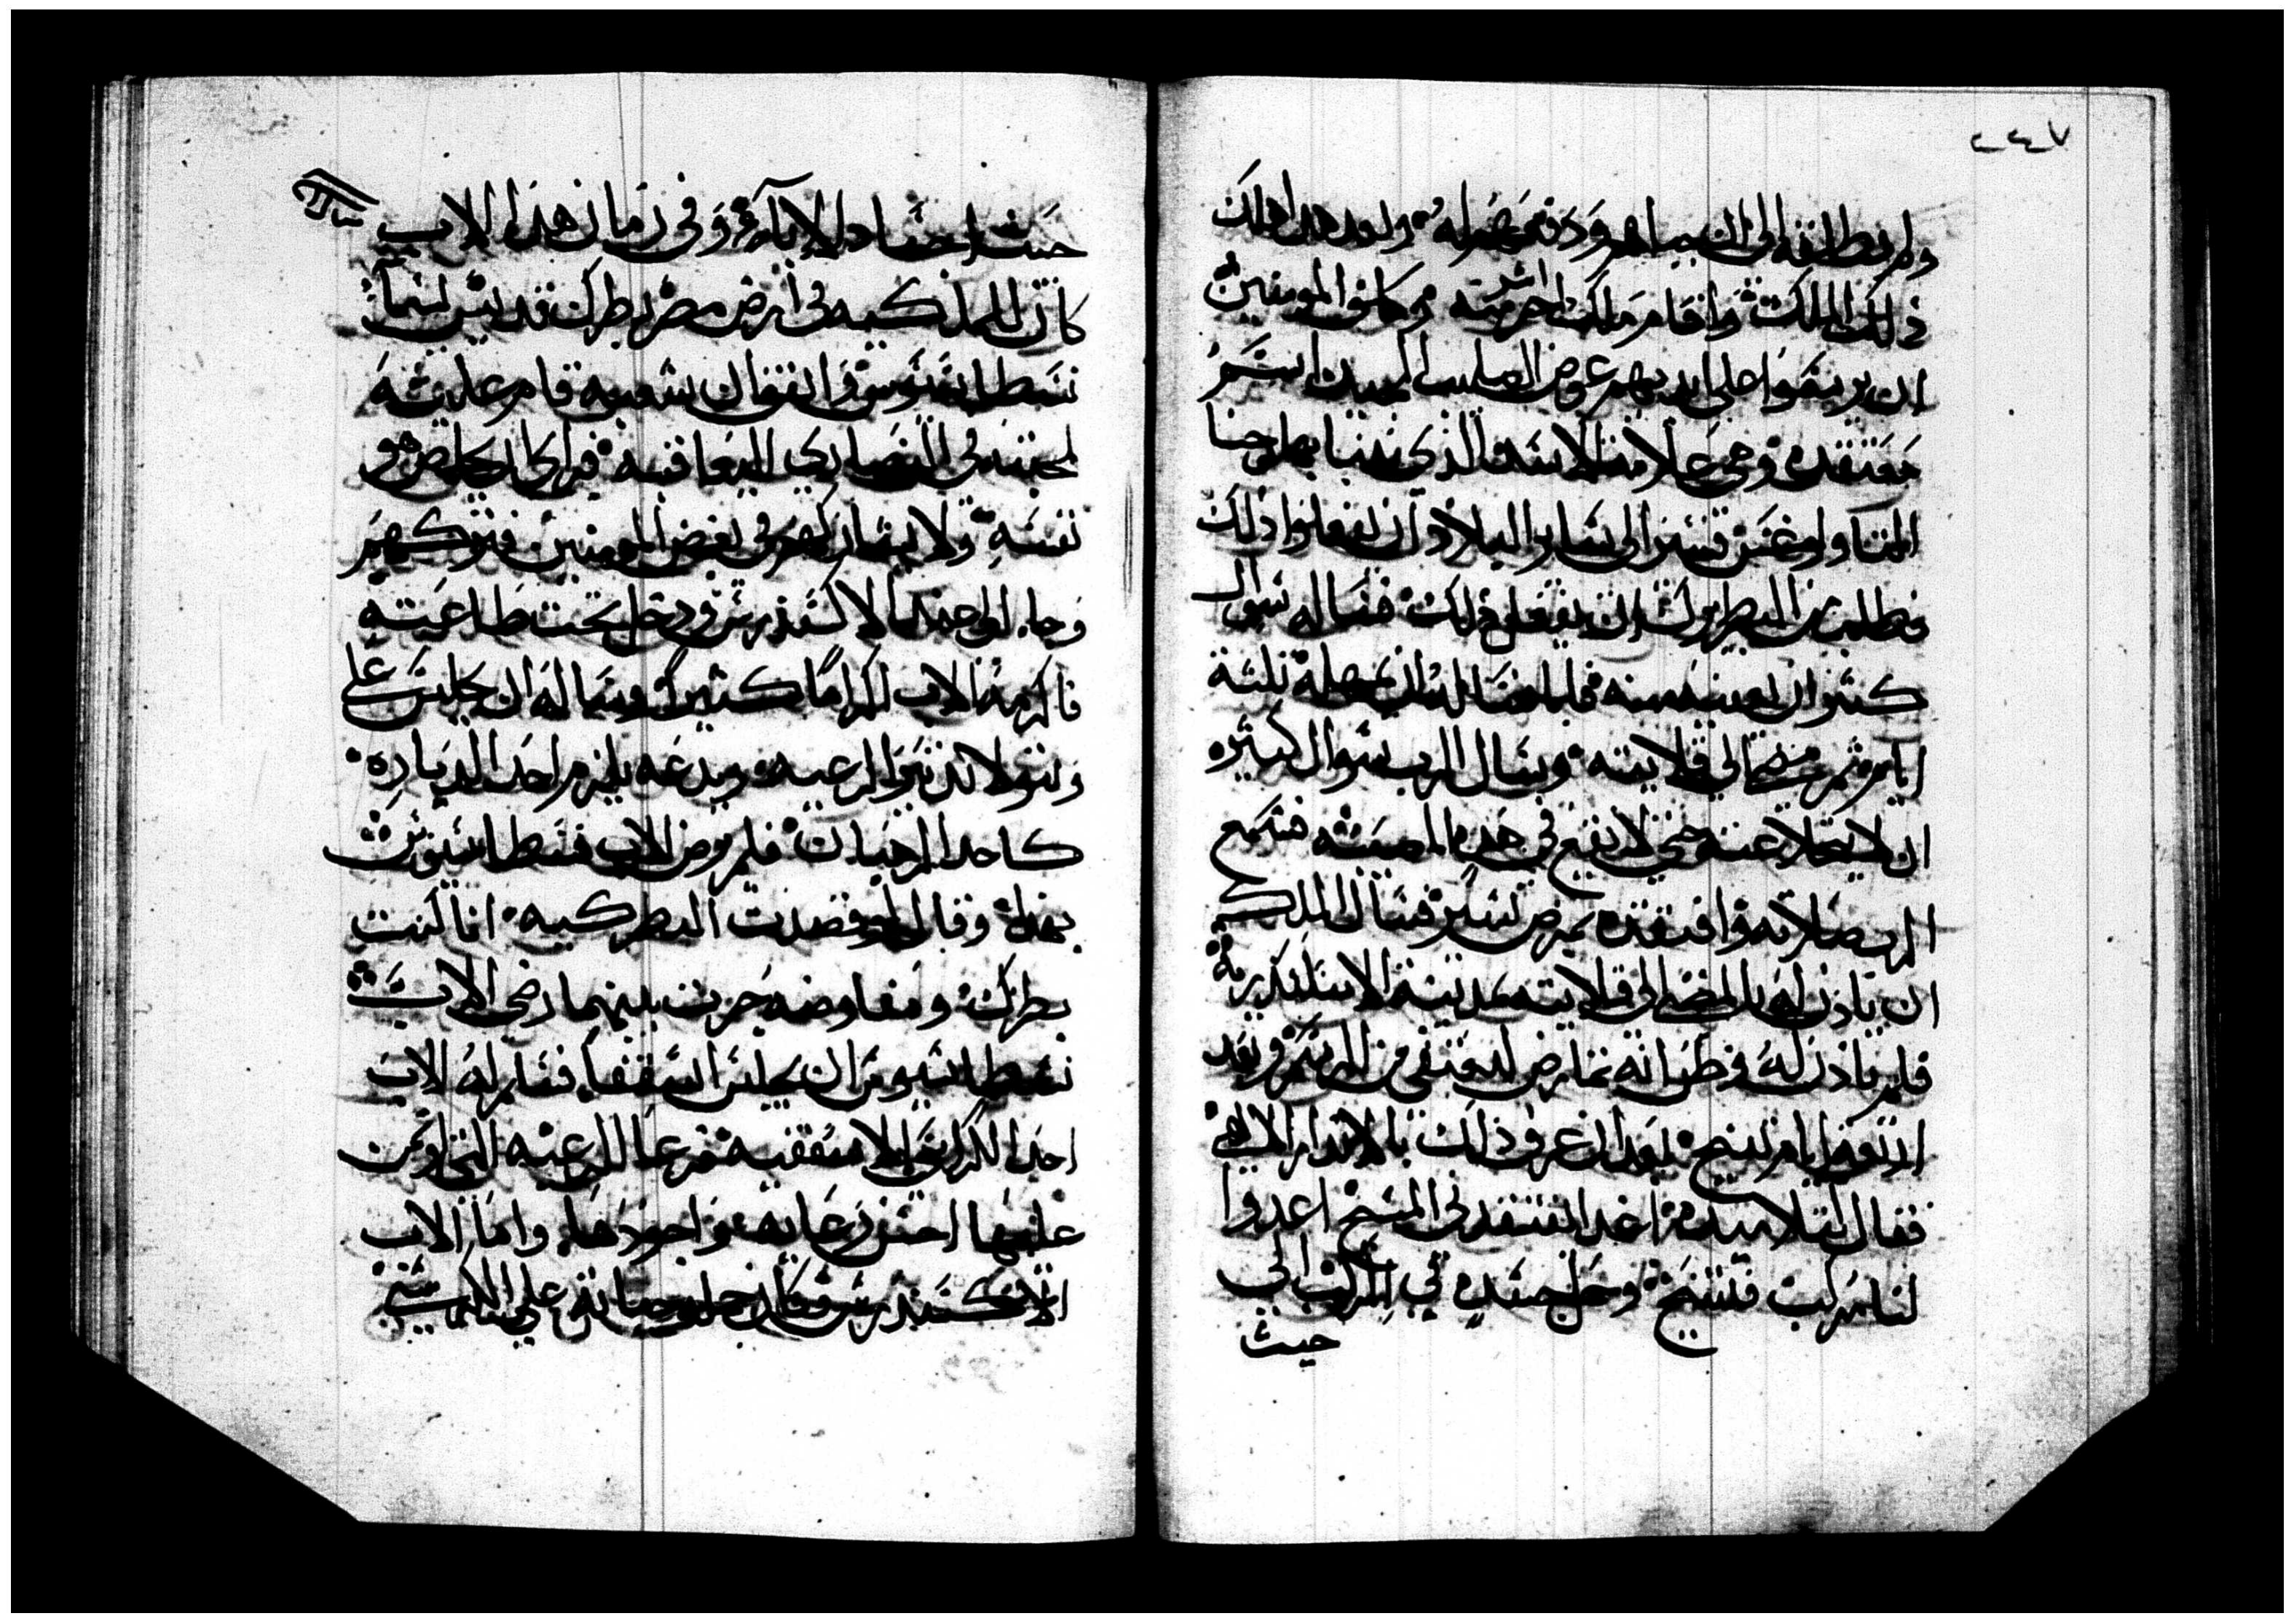 ٢٤٧
ولم يطلقه الى ان يباهم ودفعهم له وبعد هدا اهلك
ذلك الملك واقام ملك اخر اشر منه وكانوا المومنين
ان يرسموا على ايديهم عوض الصليب المجيد اسم
معتقده وهي علامة الاسد الذي تنبا بها يوحنا
المتاولوغس تسير الى ساير البلاد ان يفعلوا ذلك
وطلب من البطريرك ان يفعل ذلك فساله سوال
كثير ان يعفيه منه فلم فساله ان يمهله ثلثة
ايام ثم مضى الى قلايته وسال الرب سوال كثيره
ان لا يتخلا عنه حتى لا يقع في هذه المصيبه فسمع
الرب صلاته وافتقده بمرض يسير فسال الملك
ان ياذن له بالمضي الى قلايته بمدينة الاسكندرية
فلم ياذن له وظن انه تمارض ليعتفي من الرسم وبعد
اربعة ايام تنيح بعد ان عرف ذلك بالاندار الالاهي
فقال لتلاميده اغدا يفتقدني المسيح اعدوا
لنا مركب فتنيح وحمل جسده في المركب الى
حيث
حيث اجساد الاباء وفي زمان هذا الاب
كان للملكيه في ارض مصر بطرك قديس يسما
نسطاسيوس واتفق ان شعبه قام عليه
لمحبته في النصارى اليعاقبه فراى ان يخلص هو
نفسه ولا يشاركهم في بغض المومنين فتركهم
وجا الى عند انبا الاكسندرس ودخل تحت طاعته
فاكرمه الاب اكراما كثيرا وساله ان يجلس على
وتتولا تدبير الرعيه ويدعه يلزم احد الدياره
كاحد الرهبان فلم يرض الاب نسطاسيوس
بهذا وقال لو قصدت البطركيه انا كنت
بطرك ومفاوضه جرت بينهما رضي الاب
نسطاسيوس ان يجلس اسقفا فسلم له الاب
احد الكراسي الاسقفيه فرعا الرعيه التي اوتمن
عليها احسن رعايه واجودها واما الاب
الاكسندرس فكان جلوسه على الكرسي